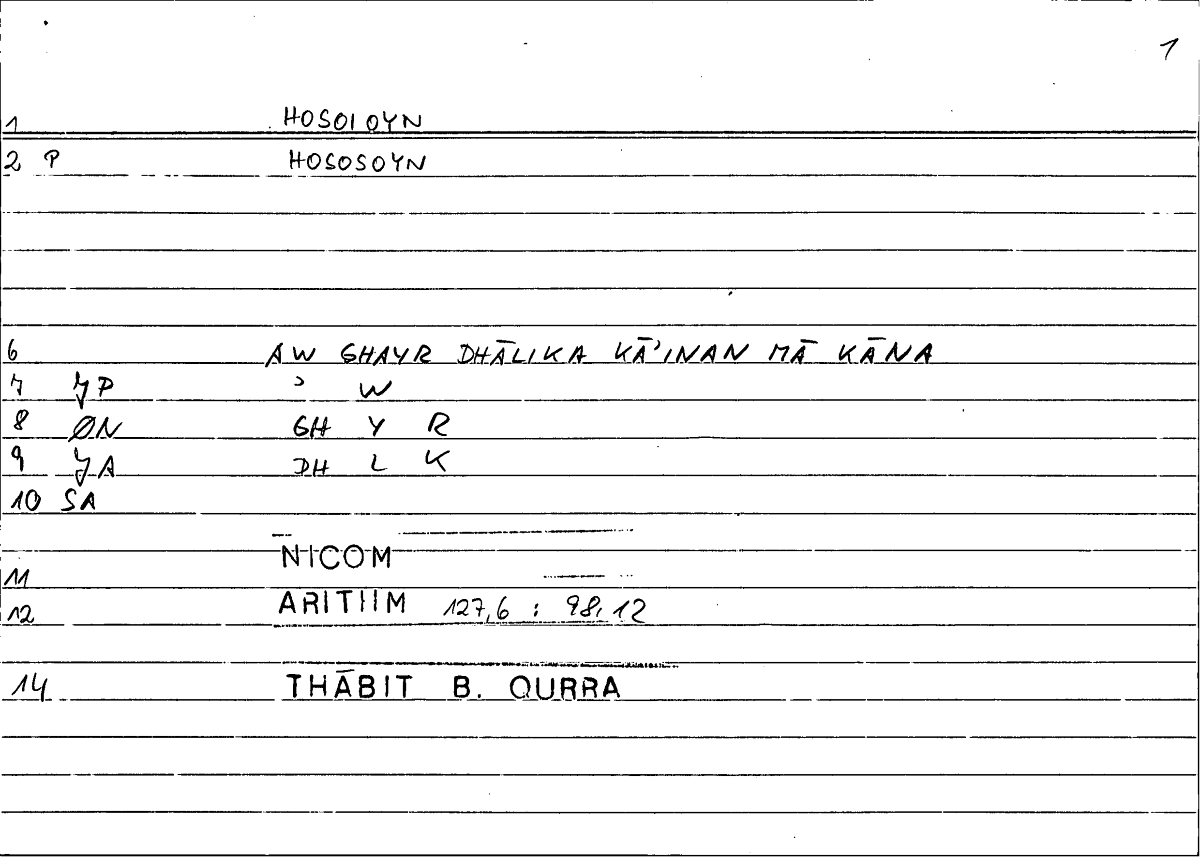 1
1 HOSOIOYN
2 P HOSOSOYN
6 AW GHAYR DHĀLIKA KĀ'INAN MĀ KĀNA
7 JP ʾ W
8 ØN GH Y R
9 JA DH L K
10 SA
11 NICOM
12 ARITIIM 127,6 : 98,12
14 THĀBIT B. QURRA